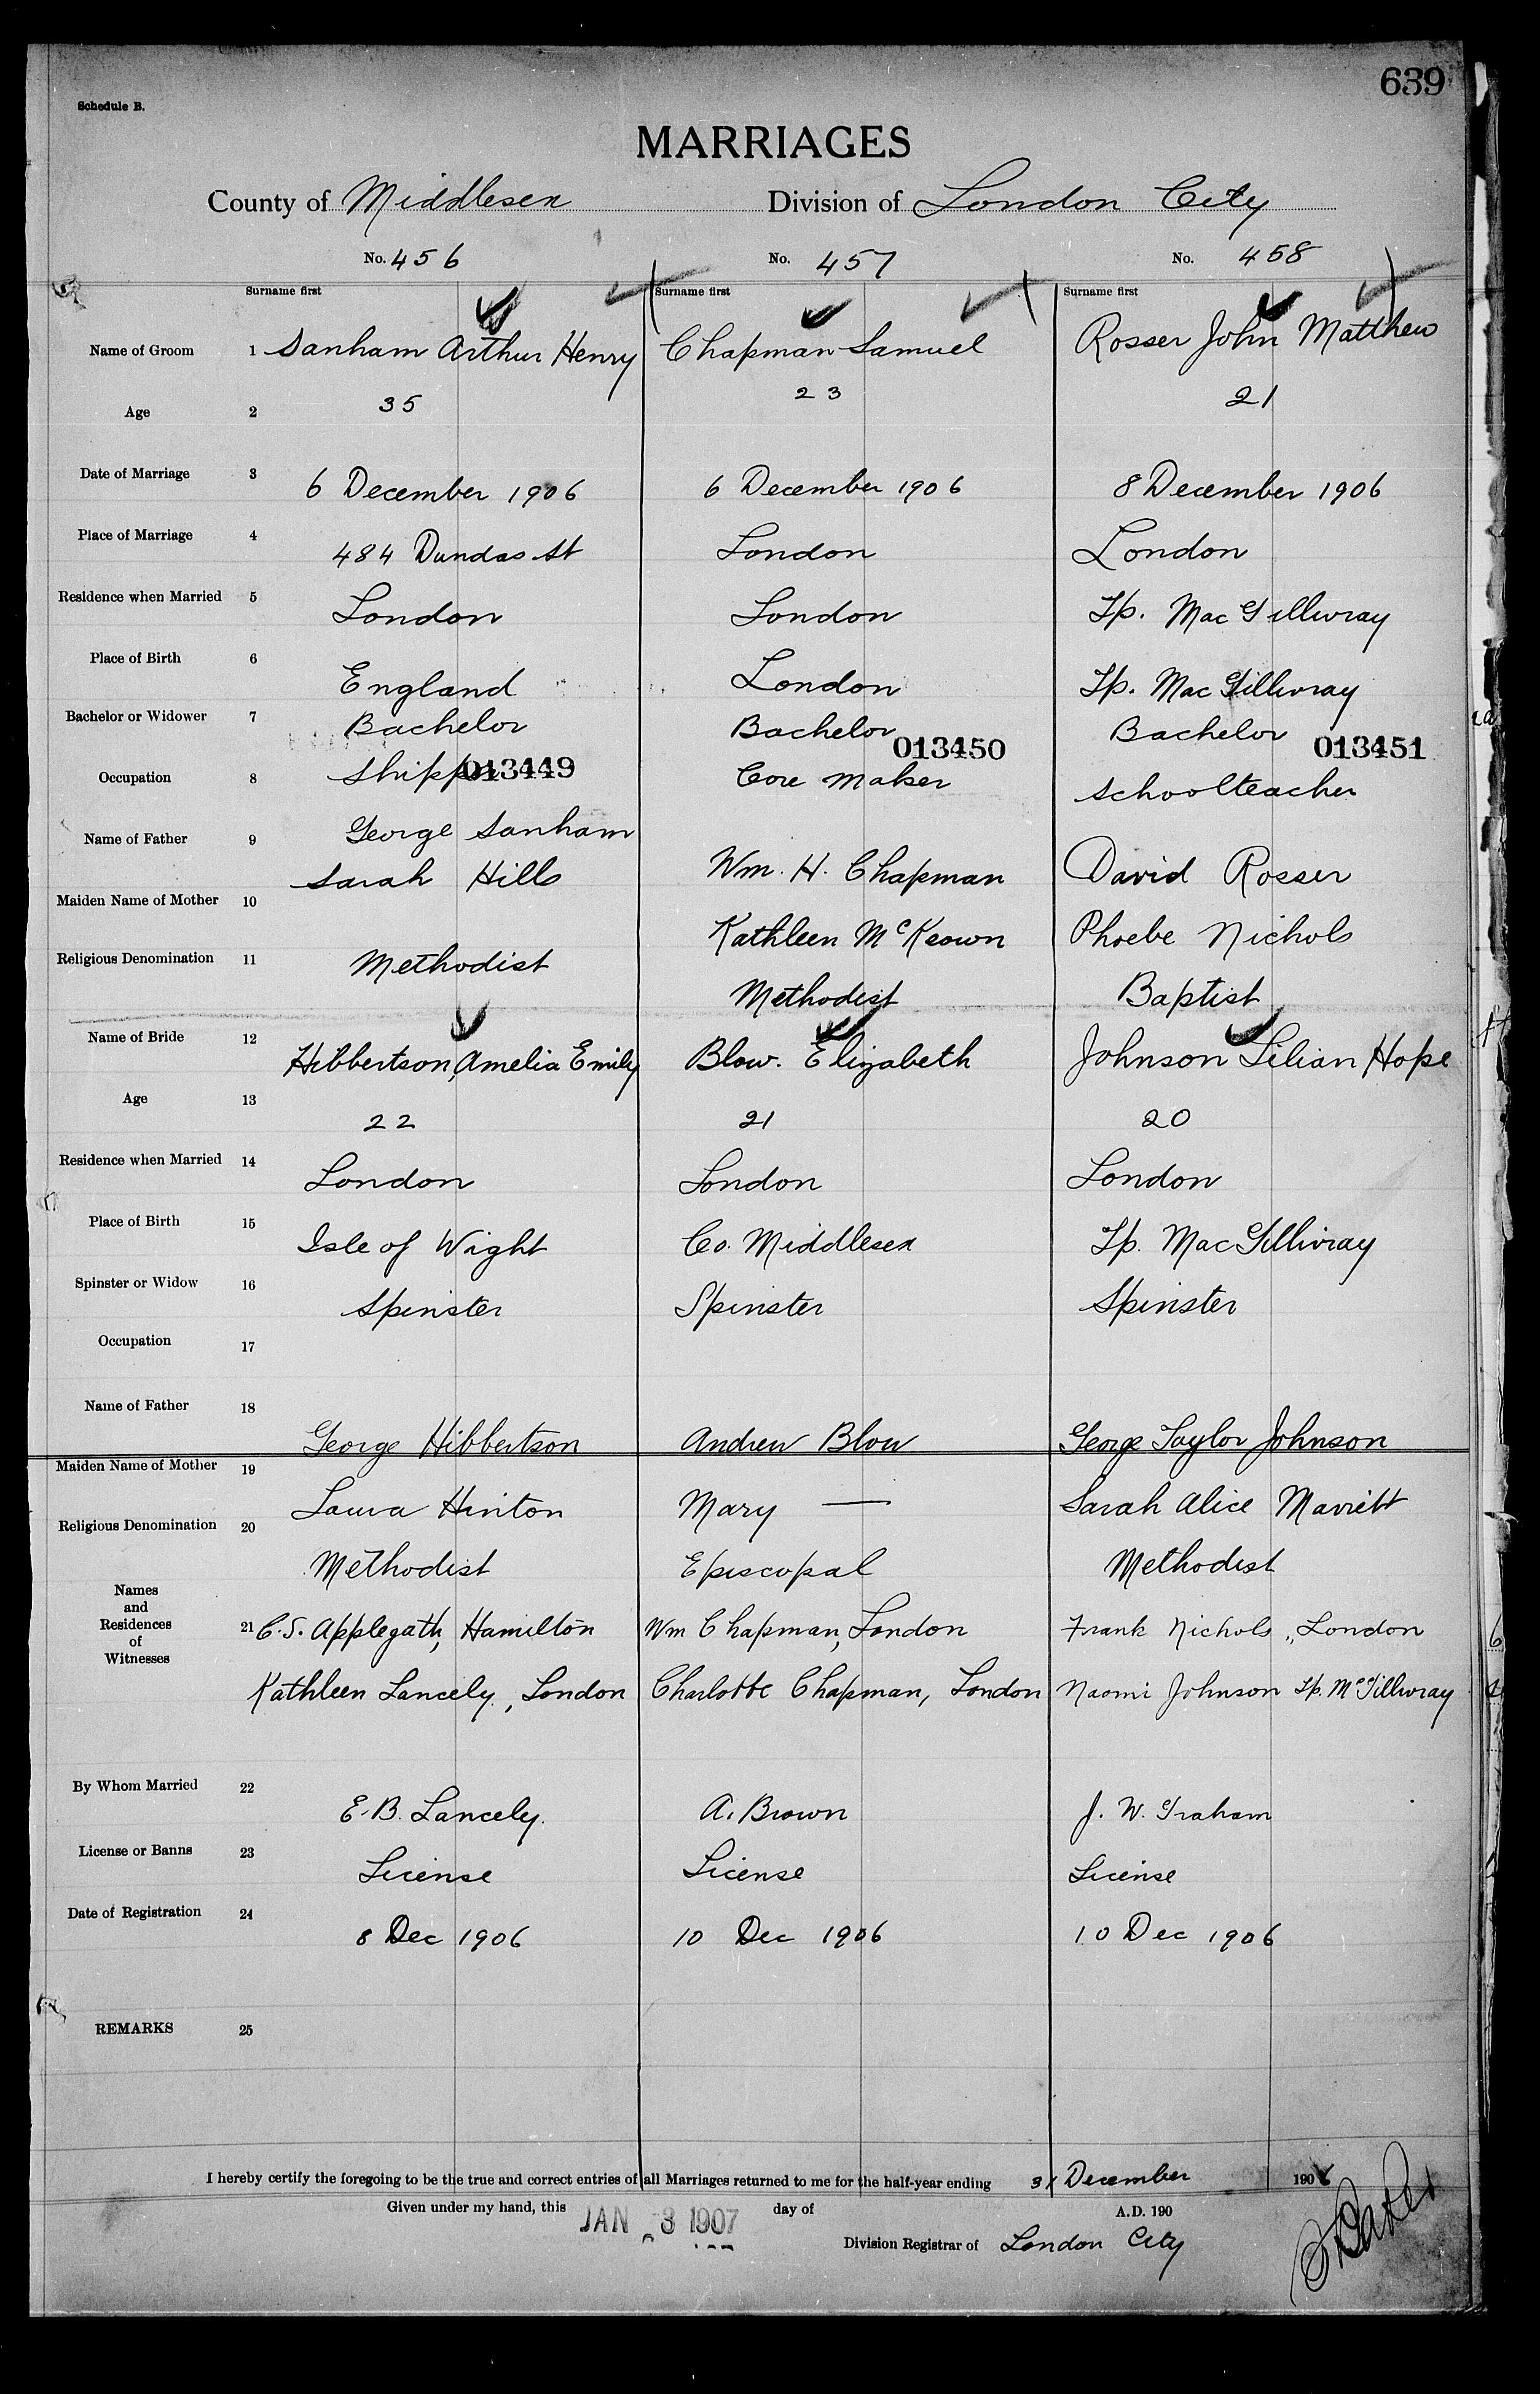 639
Schedule B.
MARRIAGES
County of Middlesex Division of London City
No. 456 No. 457 No. 458
Surname first Surname first Surname first
Name of Groom 1 Sanham Arthur Henry Chapman Samuel Rosser John Matthew
Age 2 35 23 21
Date of Marriage 3 6 December 1906 6 December 1906 8 December 1906
Place of Marriage 4 484 Dundas St London London
Residence when Married 5 London London Tp. MacGillivray
Place of Birth 6 England London Tp. MacGillivray
Bachelor or Widower 7 Bachelor Bachelor Bachelor
013449 013450 013451
Occupation 8 Shipper Core maker Schoolteacher
Name of Father 9 George Sanham Wm. H. Chapman David Rosser
Maiden Name of Mother 10 Sarah Hills Kathleen McKeown Phoebe Nichols
Religious Denomination 11 Methodist Methodist Baptist
Name of Bride 12 Hibbertson, Amelia Emily Blow. Elizabeth Johnson Lilian Hope
Age 13 22 21 20
Residence when Married 14 London London London
Place of Birth 15 Isle of Wight Co. Middlesex Tp. MacGillivray
Spinster or Widow 16 Spinster Spinster Spinster
Occupation 17
Name of Father 18 George Hibbertson Andrew Blow George Taylor Johnson
Maiden Name of Mother 19 Laura Hinton Mary — Sarah Alice Marriott
Religious Denomination 20 Methodist Episcopal Methodist
Names
and
Residences
of
Witnesses
21 C. S. Applegath, Hamilton Wm Chapman, London Frank Nichols, London
Kathleen Lancely, London Charlotte Chapman, London Naomi Johnson Tp. McGillivray
By Whom Married 22 E. B. Lancely. A. Brown J. W. Graham
License or Banns 23 License License License
Date of Registration 24 8 Dec 1906 10 Dec 1906 10 Dec 1906
REMARKS 25
I hereby certify the foregoing to be the true and correct entries of all Marriages returned to me for the half-year ending 31 December 1906
Given under my hand, this JAN 3 1907 day of A.D. 190
Division Registrar of London City